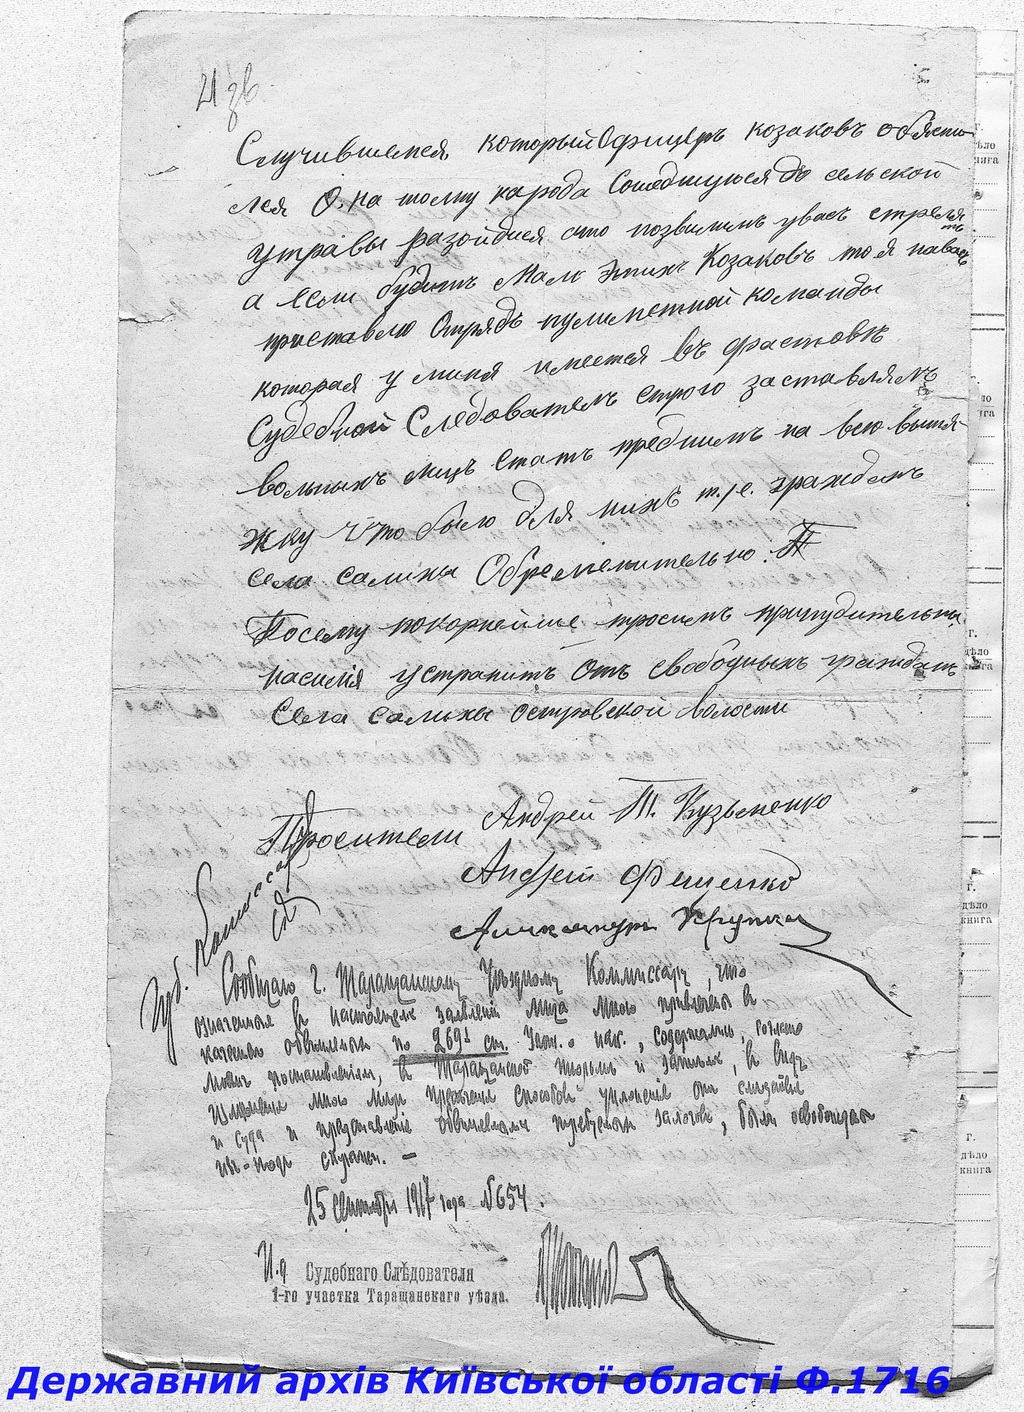 21 зв
Случившемся, который Офицеръ козаковъ обяств
лся О. на толпу народа Сошедшуюся до сельской
управы разойдися ато позвилимъ увасъ стрелять
а Если будитъ Мало Этихъ Козаковъ то я павасъ
приставлю Отрядъ пулиметной команды
которая у миня имеется въ фастовѣ
Судебной Следователъ строго заставлялъ
вольныхъ лицъ
на всю
жку Что было для нихъ т./е. гражданъ
села салихи Обременительно. П
Посему покорнейше просимъ принудительныя
насилія устранить Отъ свободныхъ гражданъ
Села салихи островской волости
Просители Андрей Т. Кузьменко
Андрей Фещенко
Александръ Крупка
Губ. Комиссар
Сообщаю г. Таращанскому Уѣздному Комиссару, что
означенные въ настоящемъ заявленіи лица мною привлечены въ
качествѣ обвиняемыхъ по 269¹ ст. Улож. о нак., содержались, согласно
моимъ постановленіямъ, въ Таращанской тюрьмѣ и затѣмъ, въ виду
измѣненія мною мѣры пресѣченія способовъ уклоненія отъ слѣдствія
и суда и представленія обвиняемыми требуемыхъ залоговъ, были освобождены
изъ-подъ стражи. —
25 Сентября 1917 года №654.
И.д. Судебнаго Слѣдователя
1-го участка Таращанскаго уѣзда.
дѣло
книга
г.
дѣло
книга
г.
дѣло
книга
Державний архів Київської області Ф.1716